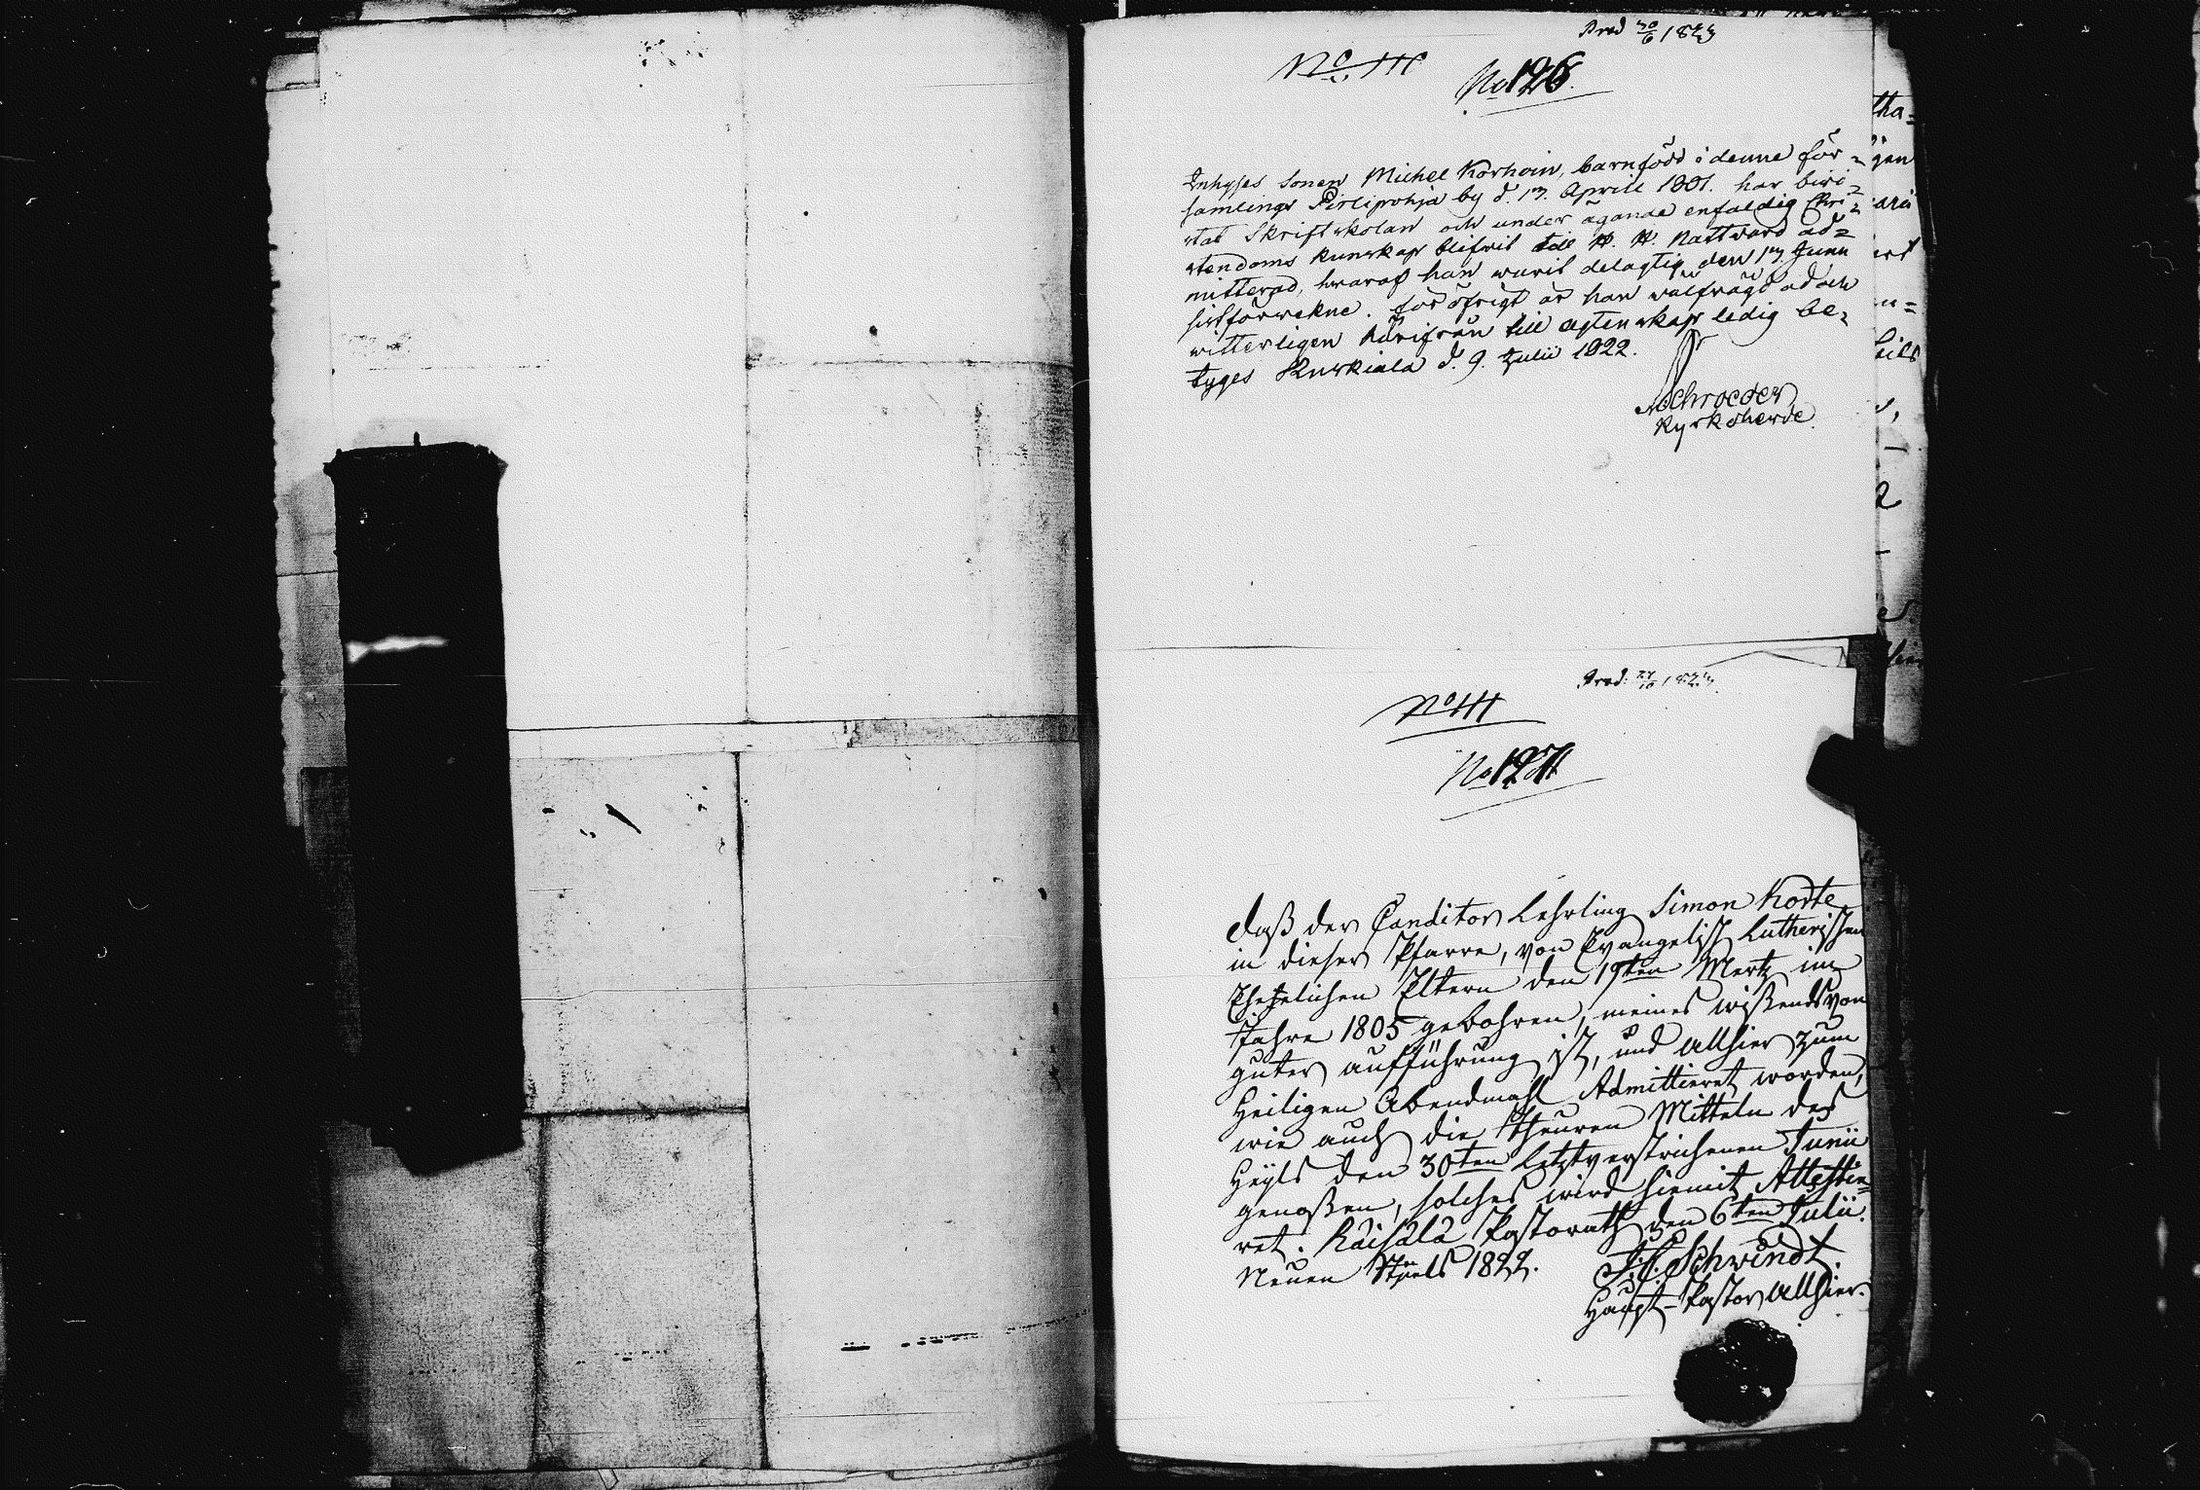 Prod 30/6 1823
No 111
No 126.
Inhyses Sonen Michel Korhoin, barnfödd i denne för=
samlings Pirlipohja by d. 17. Aprill 1801. har biwi=
stat Skriftskolan och under ägande enfaldig Chri=
stendoms kunskap blifwit till H. H. Nattward ad=
mitterad, hwaraf han warit delagtig den 17 Junii
sistförwekne. för öfrigt är han wälfrägdad och
witterligen härifrån till agtenskap ledig be=
tyges Kurkiala d. 9. Julii 1822.
Schroeder
Kyrkoherde.
Prod: 27/10 1823.
No 111
No 127
Daß der Canditor Lehrling Simon Korte
in dieser Pfarre, von Evangelisch Lutherischen
Ehelichen Eltern den 19ten Mertz im
Jahre 1805 gebohren, meines wißends von
guter aufführung ist, und allhier zum
Heiligen Abendmahl Admittieret worden,
wie auch die theuren Mitteln des
Heyls den 30ten letztverstrichenen Junii
genoßen, solches wird hiemit Attestie=
ret. Räisälä Pastorath den 6ten Julii.
Neuen Styels 1822.
Schwindt.
Haupt-Pastor allhier.